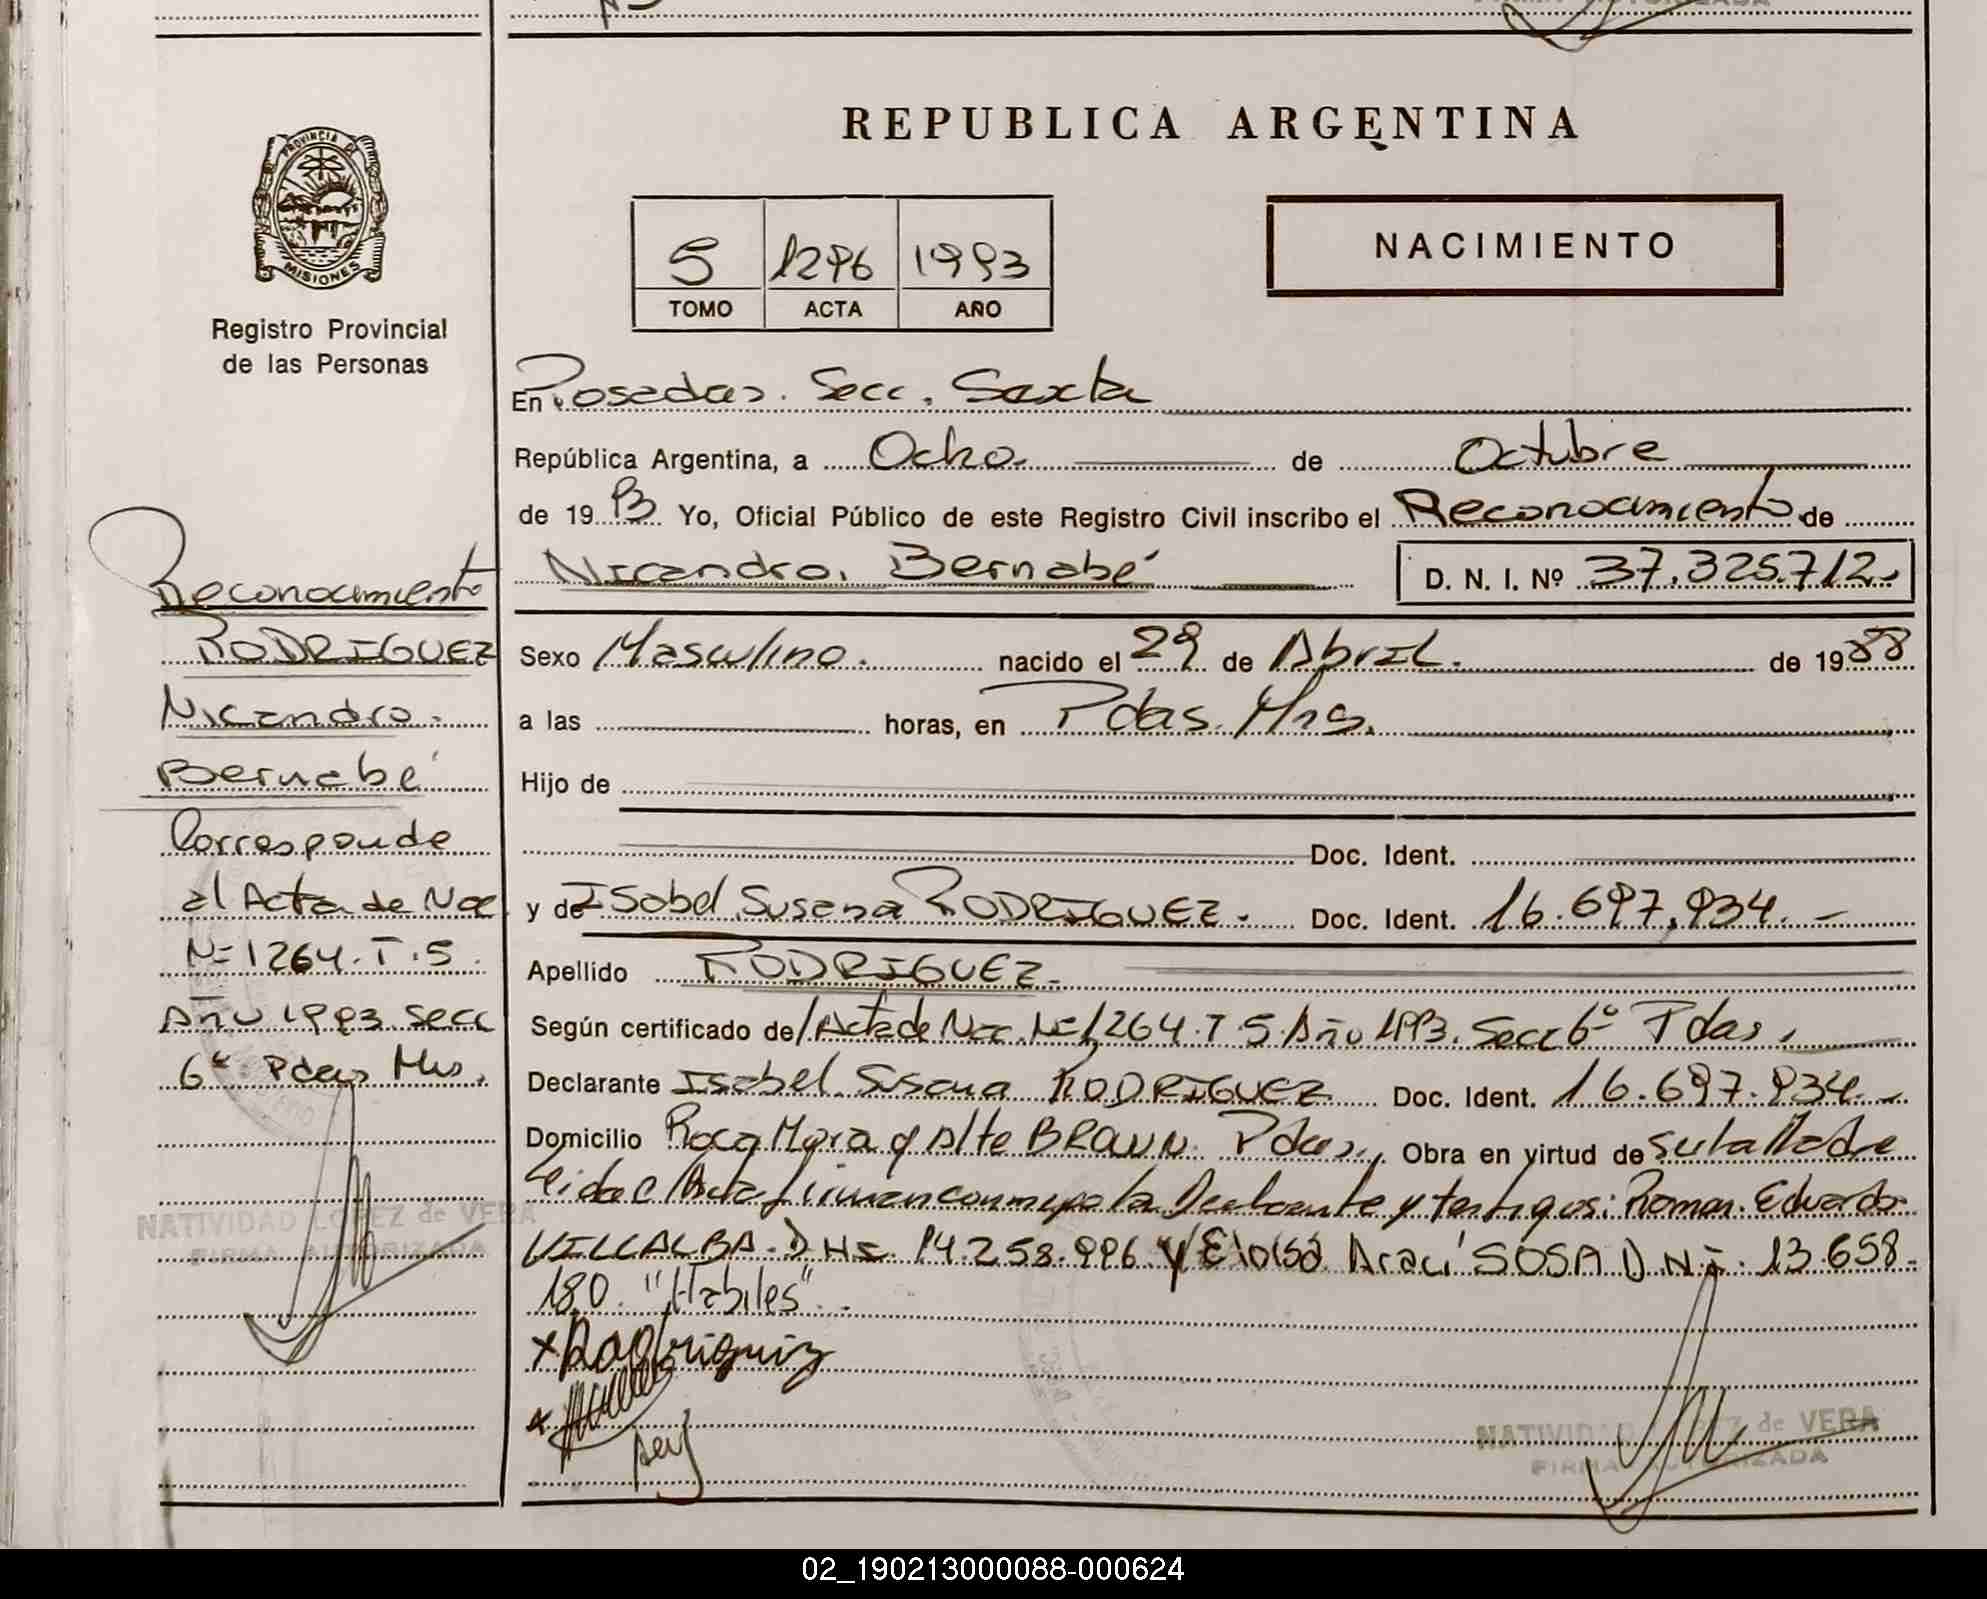 REPUBLICA ARGENTINA
PROVINCIA DE
MISIONES
Registro Provincial
de las Personas
5 1296 1993
TOMO ACTA AÑO
NACIMIENTO
En Posadas. Secc. Sexta
República Argentina, a Ocho. de Octubre
de 1993 Yo, Oficial Público de este Registro Civil inscribo el Reconocimiento de
Nicandro. Bernabé D. N. I. Nº 37.325.712.
Sexo Masculino. nacido el 29 de Abril. de 1988
a las horas, en Pdas. Mns.
Hijo de
Doc. Ident.
y de Isabel Susana RODRIGUEZ. Doc. Ident. 16.697.934.
Apellido RODRIGUEZ.
Según certificado de Acta de Nac. Nº 1264. T. 5. Año 1993. Secc 6º Pdas.
Declarante Isabel Susana RODRIGUEZ Doc. Ident. 16.697.934.
Domicilio Roca Mora y Alte BROWN. Pdas. Obra en virtud de ser la Madre
Leida el Acta firman conmigo la Declarante y testigos: Roman. Eduardo
VILLALBA. DNI. 14.258.996. y Eloisa Araci SOSA D.N.I. 13.658.
180. "Habiles".
x Rodriguez
NATIVIDAD LOPEZ de VERA
FIRMA AUTORIZADA
Reconocimiento
RODRIGUEZ
Nicandro.
Bernabé
Corresponde
al Acta de Nac
Nº 1264. T. 5.
Año 1993 Secc
6ª Pdas Mns.
NATIVIDAD LOPEZ de VERA
FIRMA AUTORIZADA
02_190213000088-000624